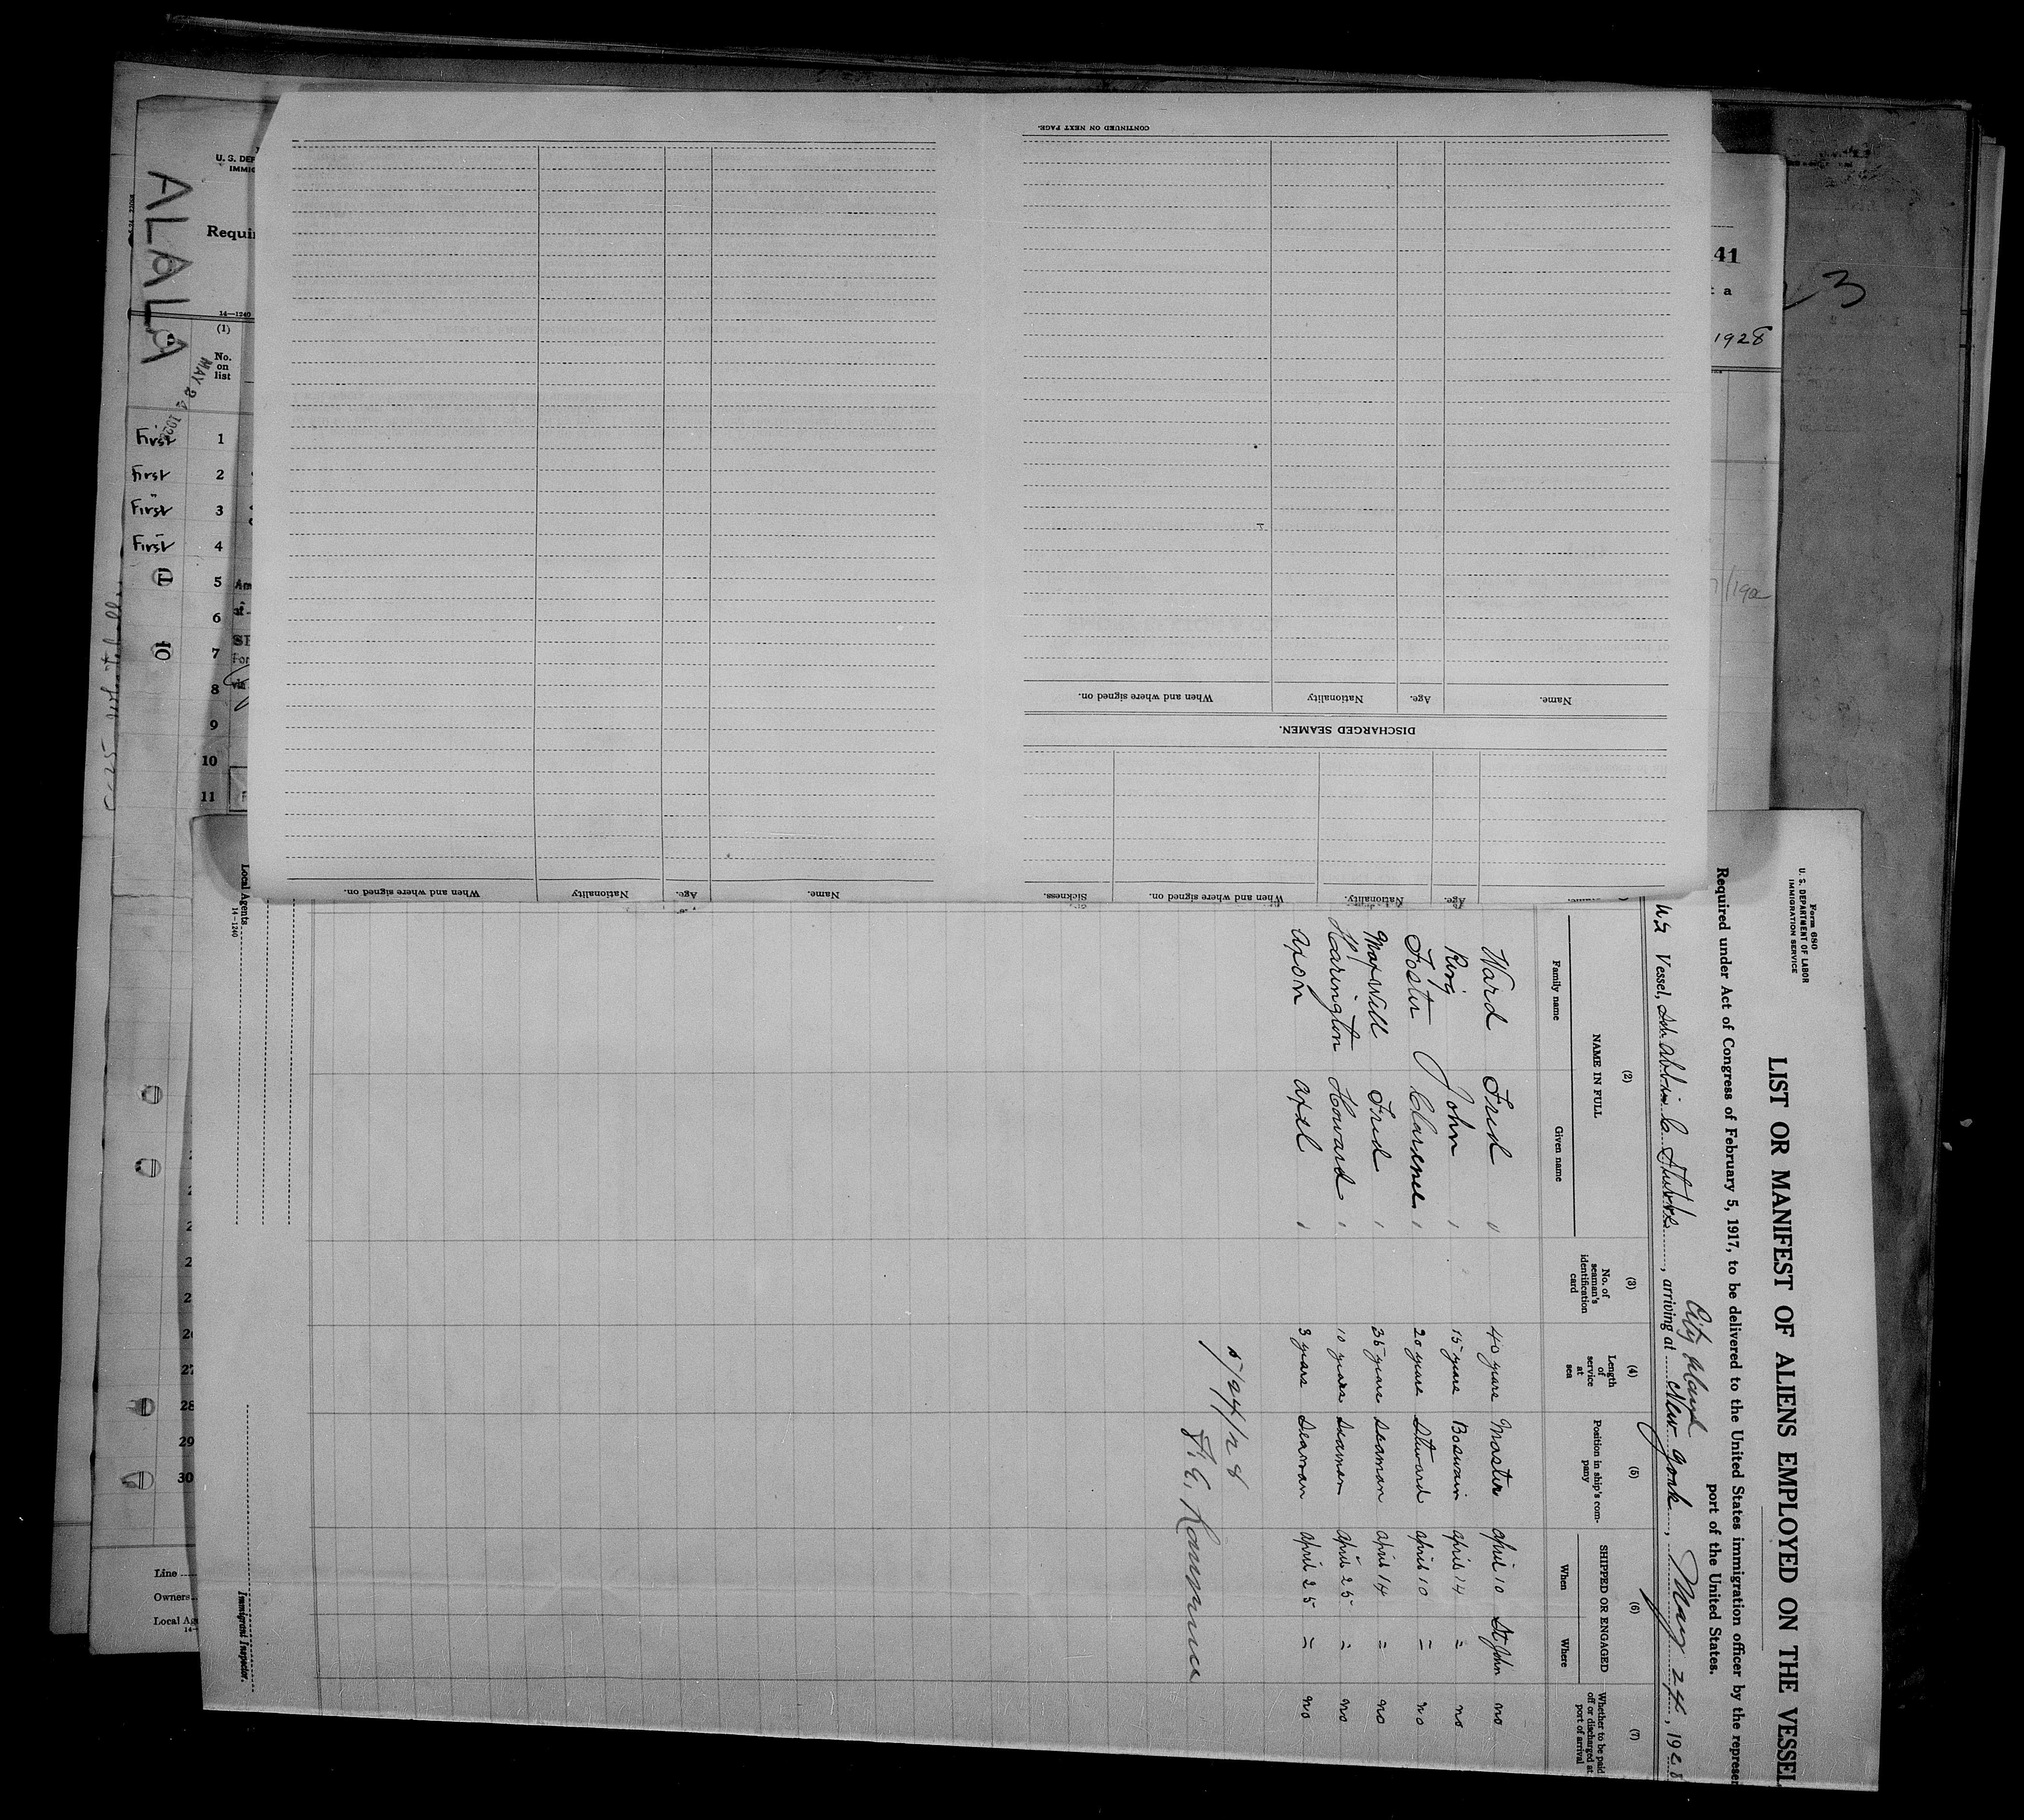 ALALA
U. S. DEP
IMMIG
Requi
14—1240
(1)
No.
on
list
MAY 24 192
First 1
First 2
First 3
First 4
5
6
7
8
9
10
11
28
29
30
Line
Owners
Local Ag
14-
41
a
1928
3
CONTINUED ON NEXT PAGE.
Name. Age. Nationality When and where signed on.
DISCHARGED SEAMEN.
Name. Age. Nationality. When and where signed on. Sickness.
Name. Age. Nationality When and where signed on.
Form 680
U. S. DEPARTMENT OF LABOR
IMMIGRATION SERVICE
LIST OR MANIFEST OF ALIENS EMPLOYED ON THE VESSEL
Required under Act of Congress of February 5, 1917, to be delivered to the United States immigration officer by the represen
port of the United States.
City Island
Vessel, Sch Abbie C Stubbs, arriving at New York, May 24, 1928
(2) (3) (4) (5) (6) (7)
NAME IN FULL
Family name Given name
No. of seaman's identification card
Length of service at sea
Position in ship's company
SHIPPED OR ENGAGED
When Where
Whether to be paid off or discharged at port of arrival
Ward Fred 40 years Master April 10 St John no
King John 15 years Boswain April 14 " no
Foster Clarence 20 years Steward April 10 " no
Maxwell Fred 35 years Seaman April 14 " no
Harington Howard 10 years Seaman April 25 " no
Axon Axel 3 years Seaman April 25 " no
5/24/28
Local Agents
14—1240
Immigrant Inspector.